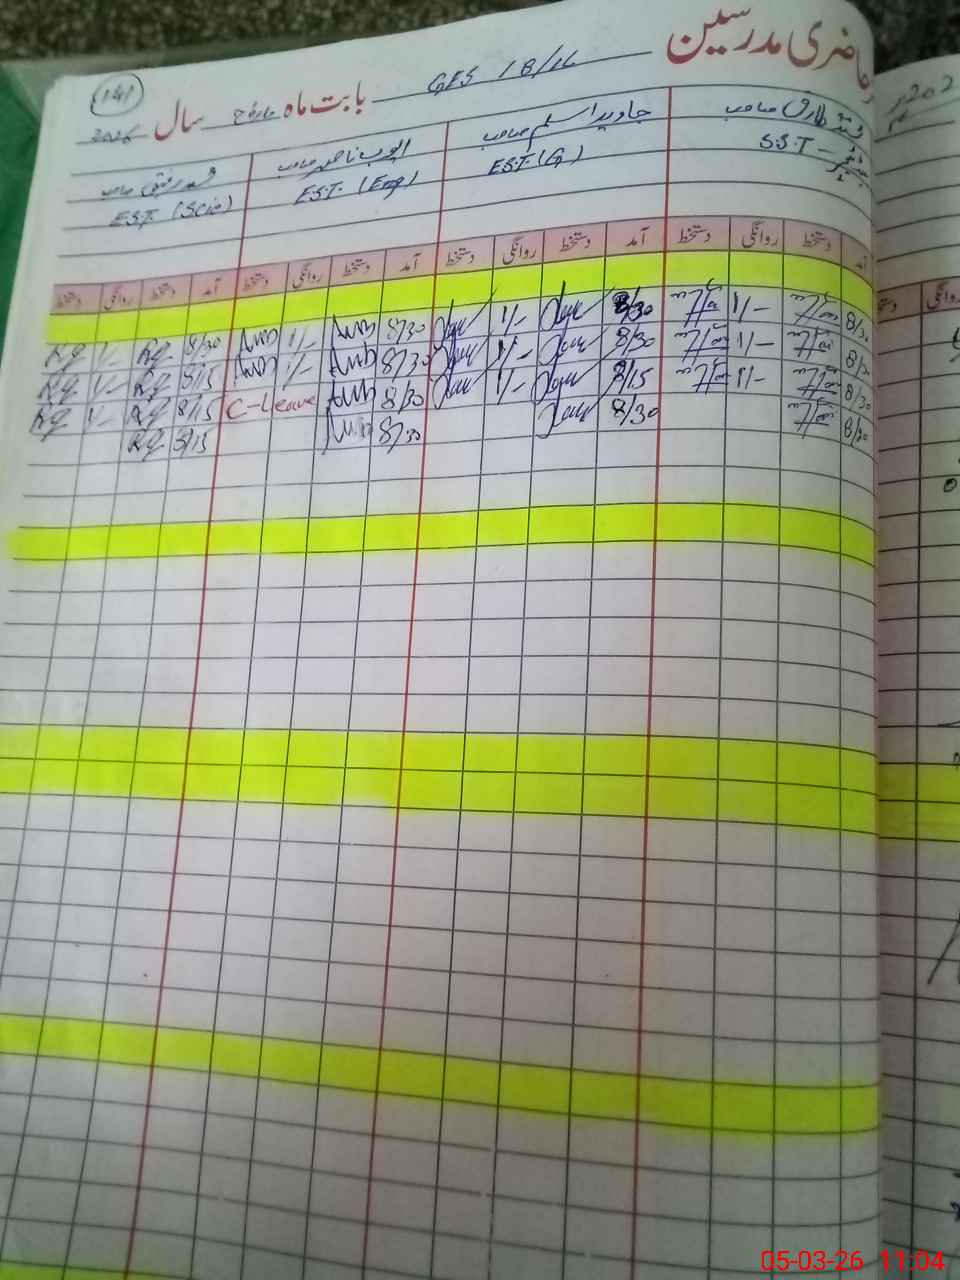 حاضری مدرسین
GES 18/1L بابت ماہ مارچ سال 2026
141
202
طارق صاحب جاوید اسلم صاحب ایوب ناصر صاحب محمد رفیق صاحب
S.S.T E.S.T (G) E.S.T. (Eng) E.S.T. (Scie)
آمد دستخط روانگی دستخط آمد دستخط روانگی دستخط آمد دستخط روانگی دستخط آمد دستخط روانگی دستخط
8/30 1/- 8/30 1/- 8/30 1/- 8/30 1/-
8/30 1/- 8/30 1/- 8/30 1/- 8/15 1/-
8/30 1/- 8/15 1/- 8/30 C-Leave 8/15 1/-
8/30 8/30 8/30 8/15
05-03-26 11:04